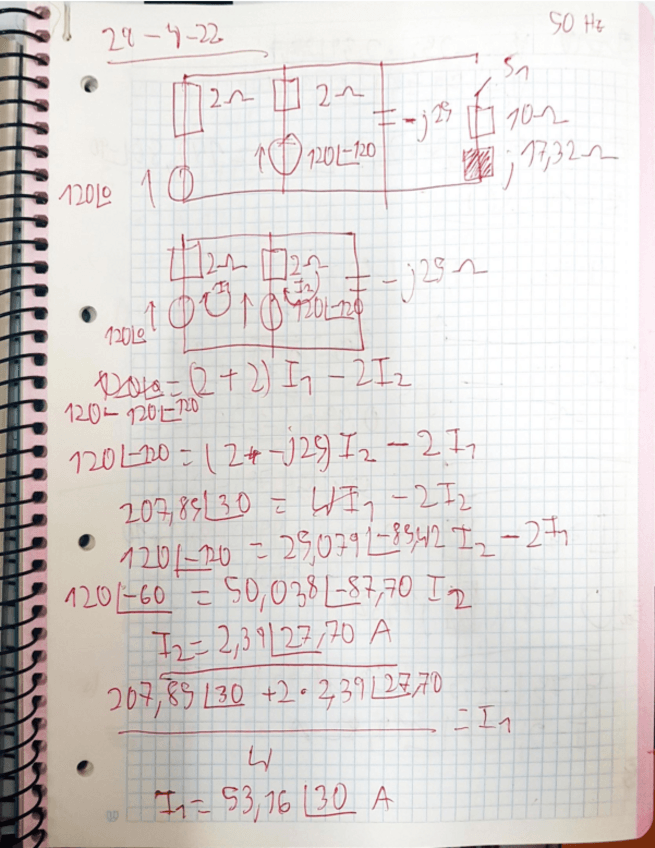 28-4-22 50 Hz
2Ω 2Ω -j25 S1 10Ω
120∟0 120∟-120 j17,32Ω
2Ω 2Ω -j25Ω
I1 I2
120∟0 120∟-120
120∟0 = (2+2) I1 - 2I2
120 - 120∟-120
120∟-120 = (2 + -j25) I2 - 2 I1
207,85∟30 = 4I1 - 2I2
120∟-120 = 25,079∟-85,42 I2 - 2I1
120∟-60 = 50,038∟-87,70 I2
I2 = 2,39∟27,70 A
207,85∟30 + 2·2,39∟27,70
= I1
4
I1 = 53,16∟30 A